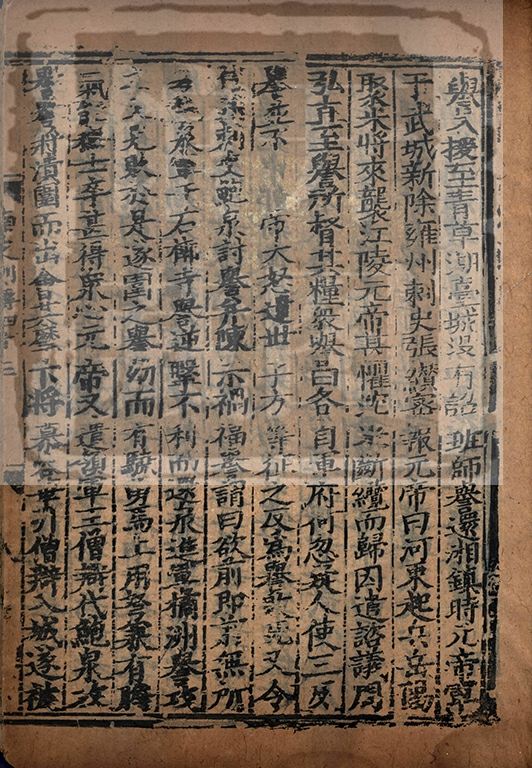 譽入援至青草湖臺城沒有詔班師譽還湘鎮時元帝軍
于武城新除雍州刺史張纘密報元帝曰河東起兵岳陽
聚米將來襲江陵元帝甚懼沈米斷纜而歸因遣諮議周
弘直至譽所督其糧衆譽曰各自軍府何忽疑人使三反
譽並不帝大怒遣世子方等征之反為譽敗死又令
刺史鮑泉討譽并陳示禍福譽謂曰欲前即前無所
右櫛寺譽逆擊不利而還泉進軍橘洲譽攻
見敗於是遂圍之譽幼而有驍勇馬上用弩兼有膽
氣能撫士卒甚得衆心元帝又遣領軍王僧辯代鮑泉攻
譽譽將潰圍而出會其麾下將慕容華引僧辯入城遂被
列傳四十三